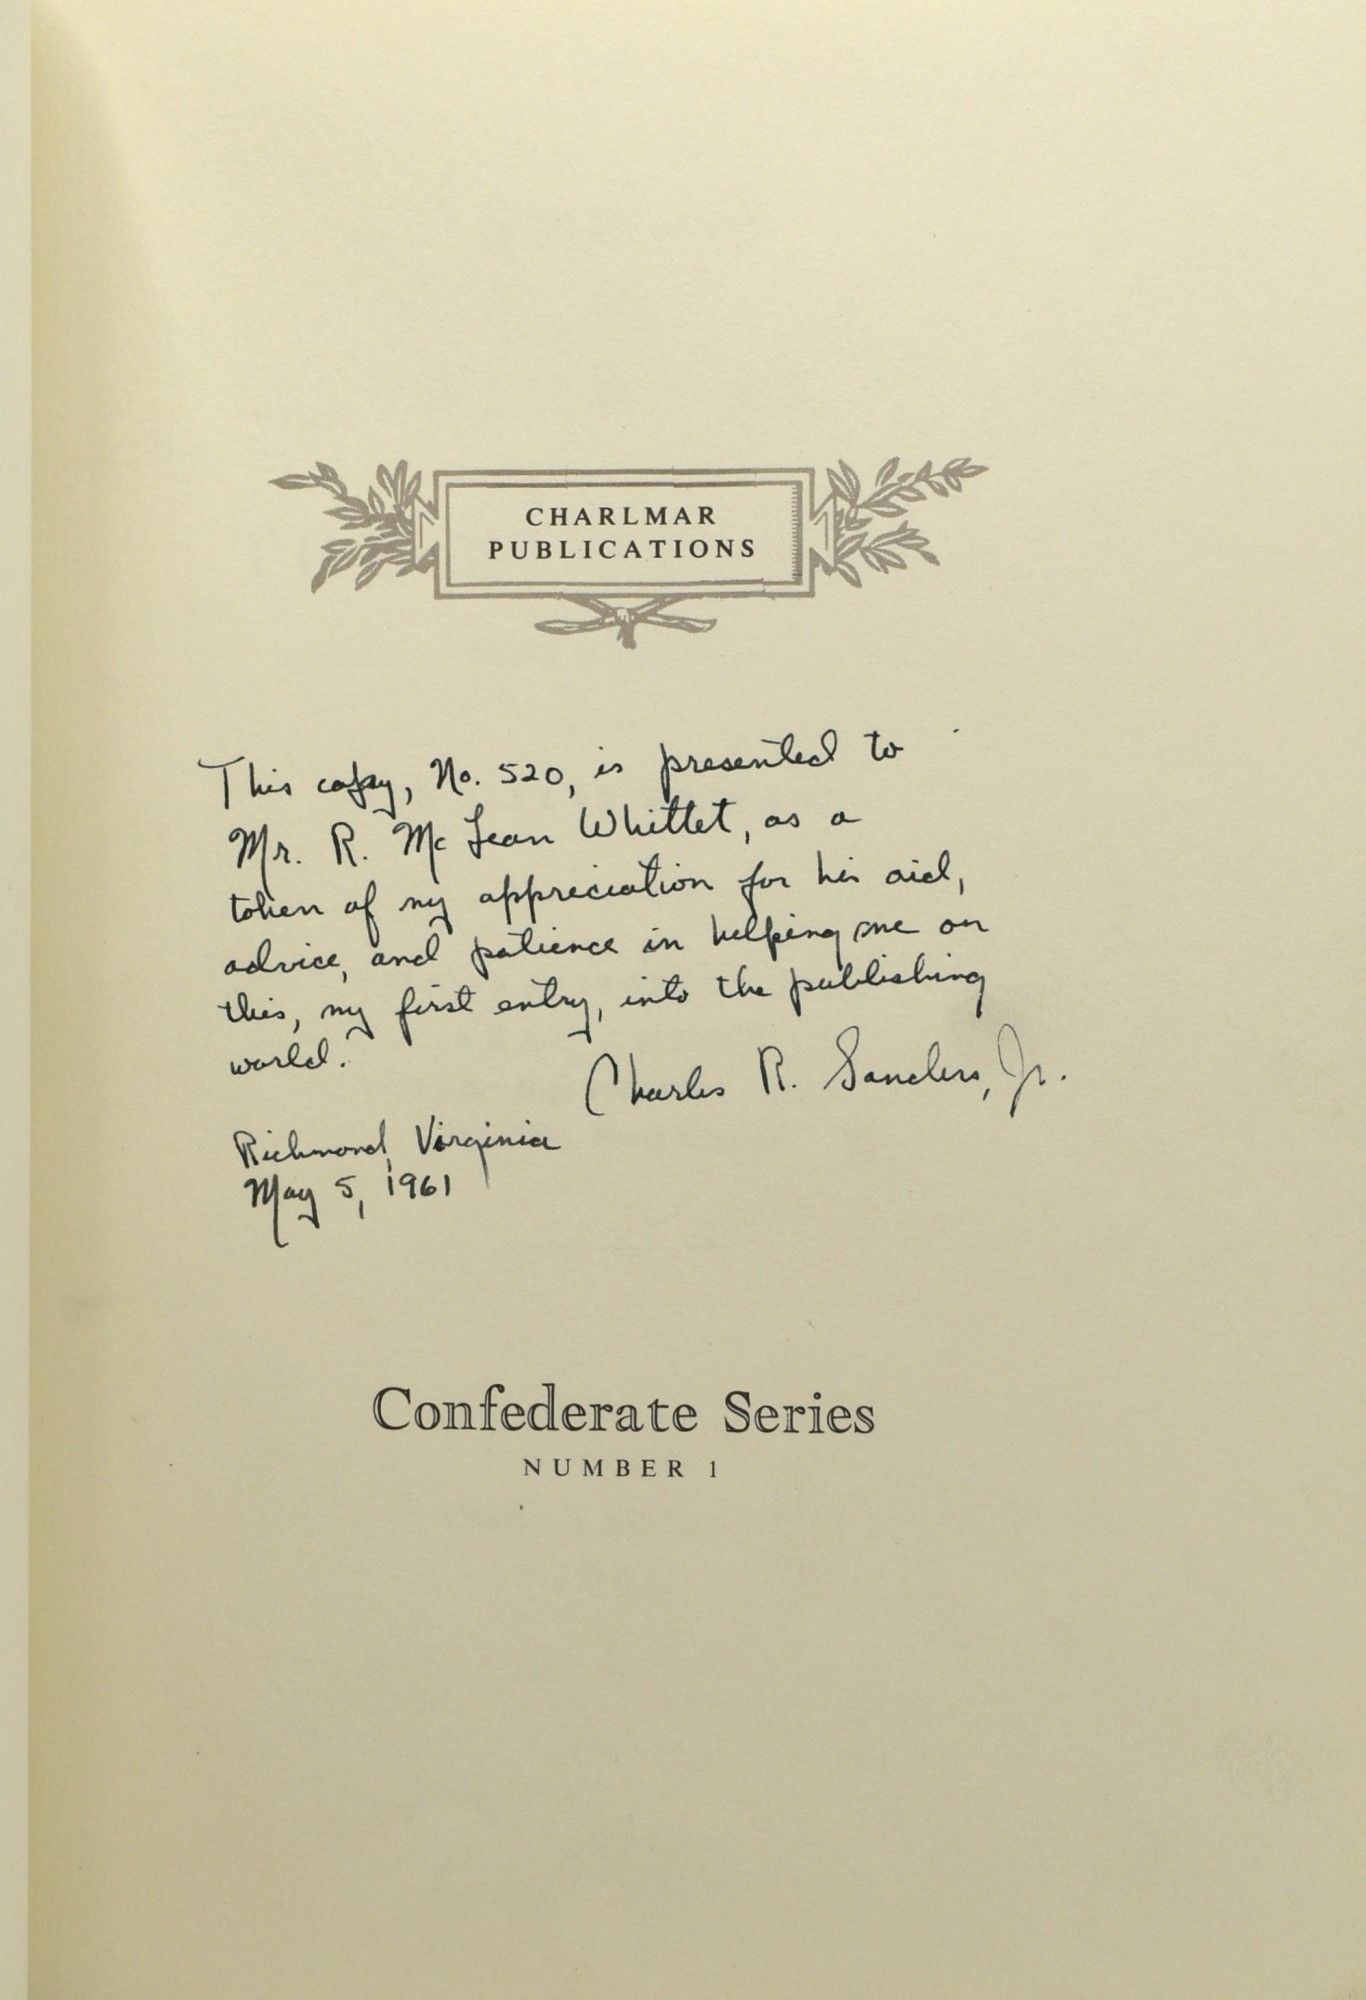 CHARLMAR
PUBLICATIONS
This copy, No. 520, is presented to
Mr. R. McLean Whittet, as a
token of my appreciation for his aid,
advice, and patience in helping me on
this, my first entry, into the publishing
world.
Charles R. Sanders, Jr.
Richmond, Virginia
May 5, 1961
Confederate Series
NUMBER 1